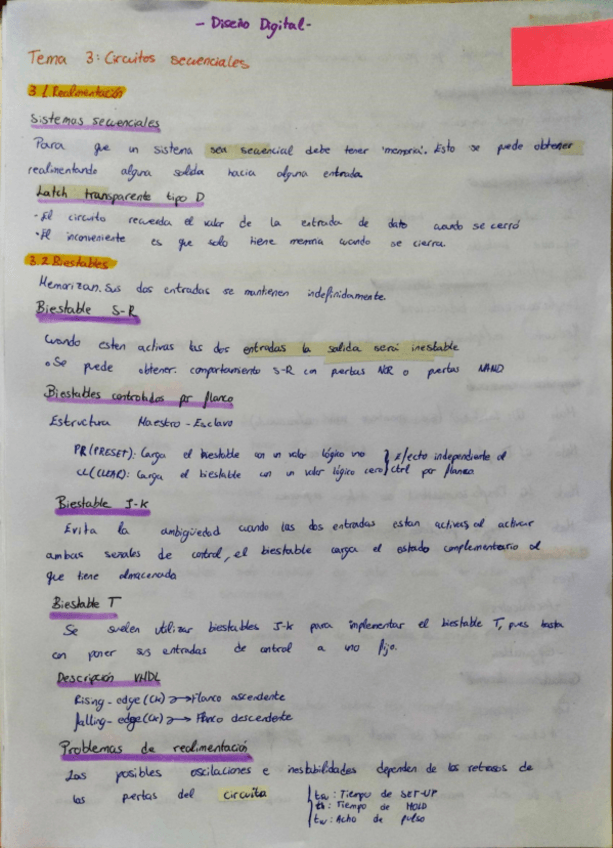 - Diseño Digital -
Tema 3: Circuitos secuenciales
3.1 Realimentación
Sistemas secuenciales
Para que un sistema sea secuencial debe tener 'memoria'. Esto se puede obtener
realimentando alguna salida hacia alguna entrada.
Latch transparente tipo D
- El circuito recuerda el valor de la entrada de dato cuando se cerró
· El inconveniente es que solo tiene memoria cuando se cierra.
3.2 Biestables
Memorizan. Sus dos entradas se mantienen indefinidamente.
Biestable S-R
Cuando esten activas las dos entradas la salida será inestable
· Se puede obtener. comportamiento S-R con puertas NOR o puertas NAND
Biestables controlados por flanco
Estructura Maestro - Esclavo
PR (PRESET): Carga el biestable con un valor lógico uno } Efecto independiente al
CL (CLEAR): Carga el biestable con un valor lógico cero } ctrl por flanco
Biestable J-K
Evita la ambigüedad cuando las dos entradas estan activas, al activar
ambas señales de control, el biestable carga el estado complementario al
que tiene almacenado
Biestable T
Se suelen utilizar biestables J-K para implementar el biestable T, pues basta
con poner sus entradas de control a uno fijo.
Descripción VHDL
Rising - edge (CK) → Flanco ascendente
falling - edge (CK) → Flanco descendente
Problemas de realimentación
Las posibles oscilaciones e inestabilidades dependen de los retrasos de
las puertas del circuito
tsu: Tiempo de SET-UP
th: Tiempo de HOLD
tw: Acho de pulso